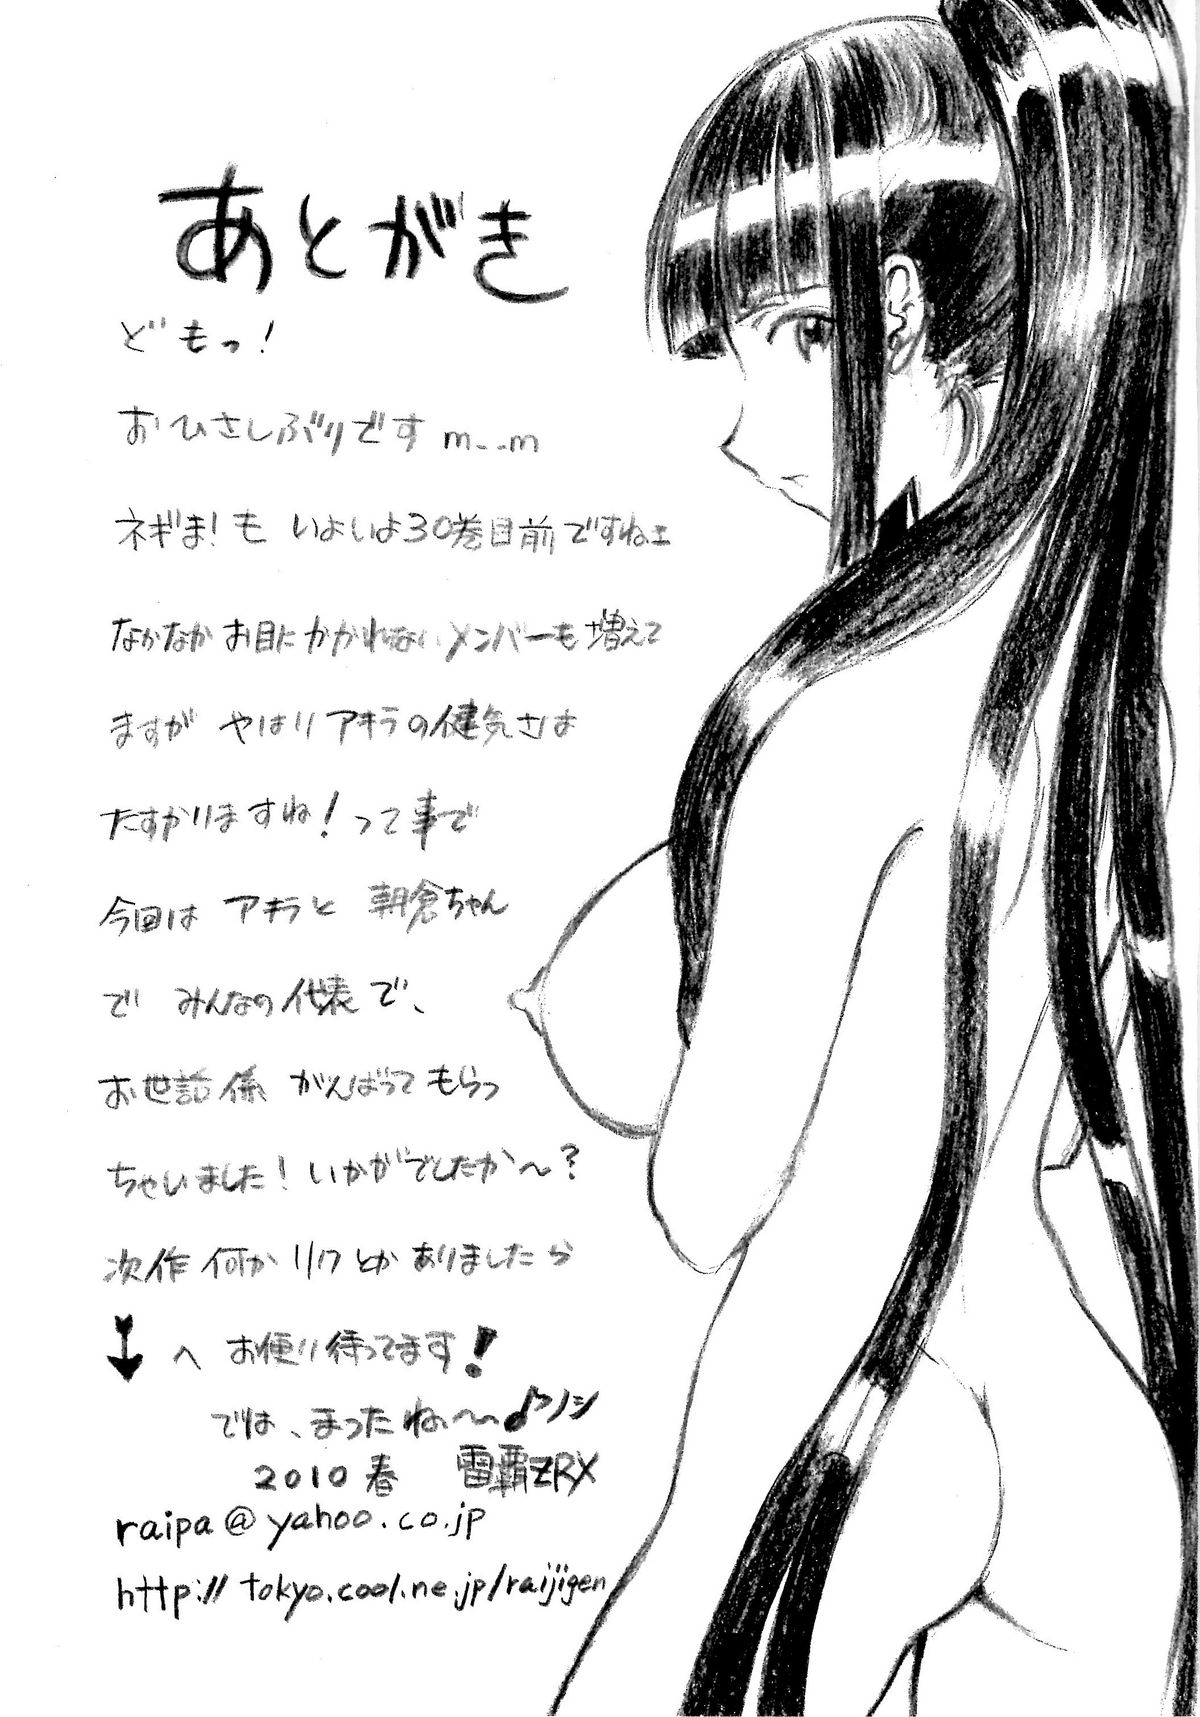 あとがき
どもっ!
おひさしぶりです m--m
ネギま!も いよいよ30巻目前ですね
なかなか お目にかかれないメンバーも増えて
ますが やはりアキラの健気さは
たすかりますね!って事で
今回は アキラと 朝倉ちゃん
で みんなの代表で、
お世話係 がんばって もらっ
ちゃいました! いかがでしたか〜?
次作 何か リクとか ありましたら
↓へ お便り待ってます!
では、まったね〜♪
2010 春 雷覇ZRX
raipa@yahoo.co.jp
http://tokyo.cool.ne.jp/raijigen